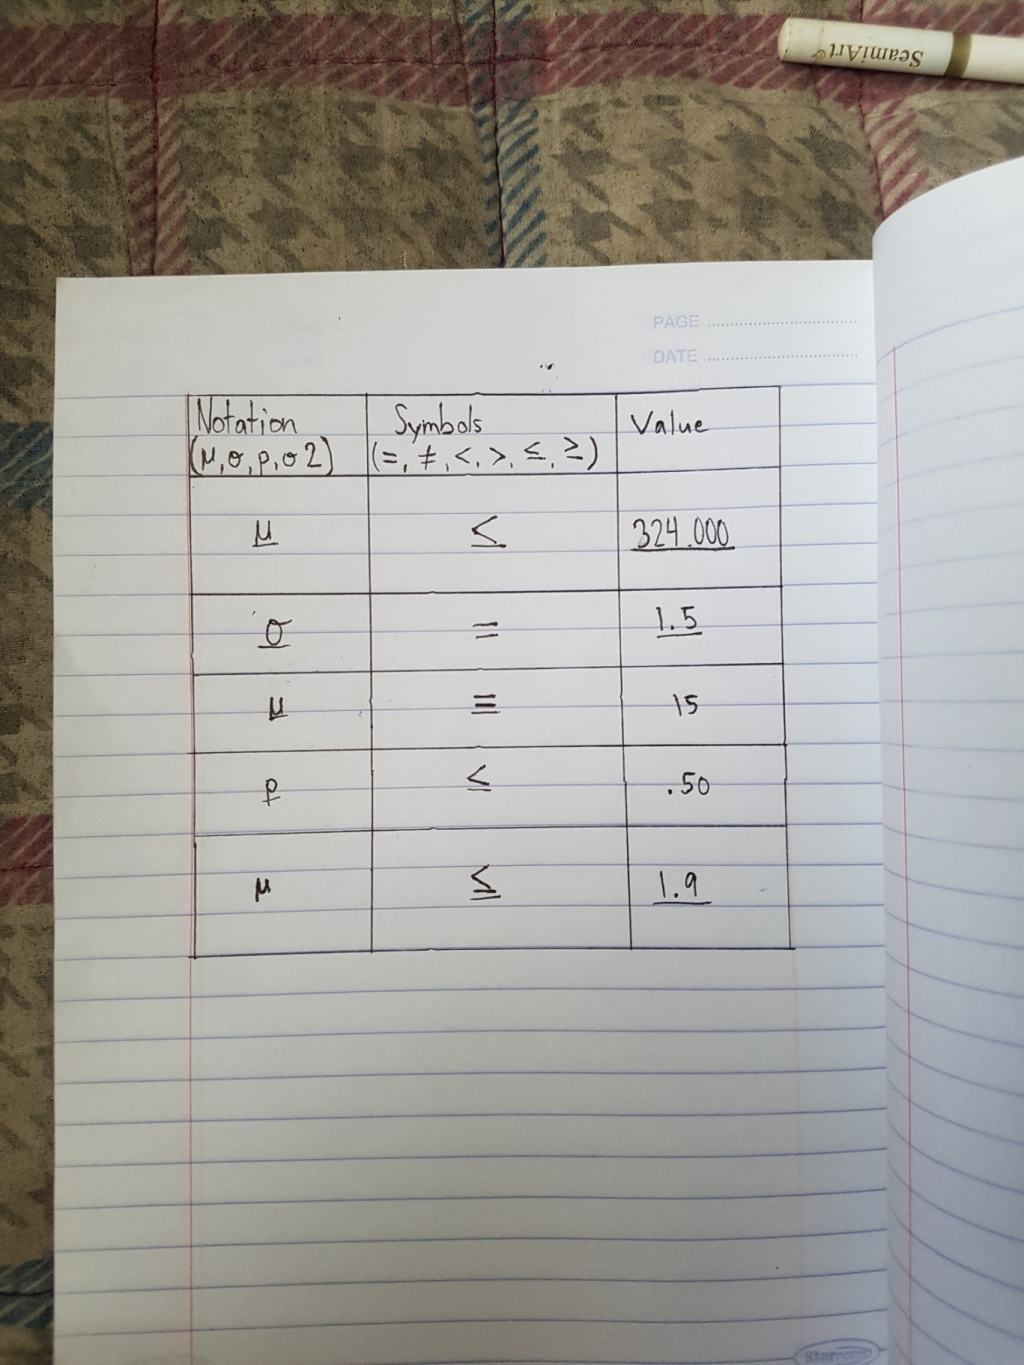 SeamiArt
PAGE
DATE
Notation Symbols Value
(μ, σ, p, σ2) (=, ≠, <, >, ≤, ≥)
μ ≤ 324.000
σ = 1.5
μ = 15
p ≤ .50
μ ≤ 1.9